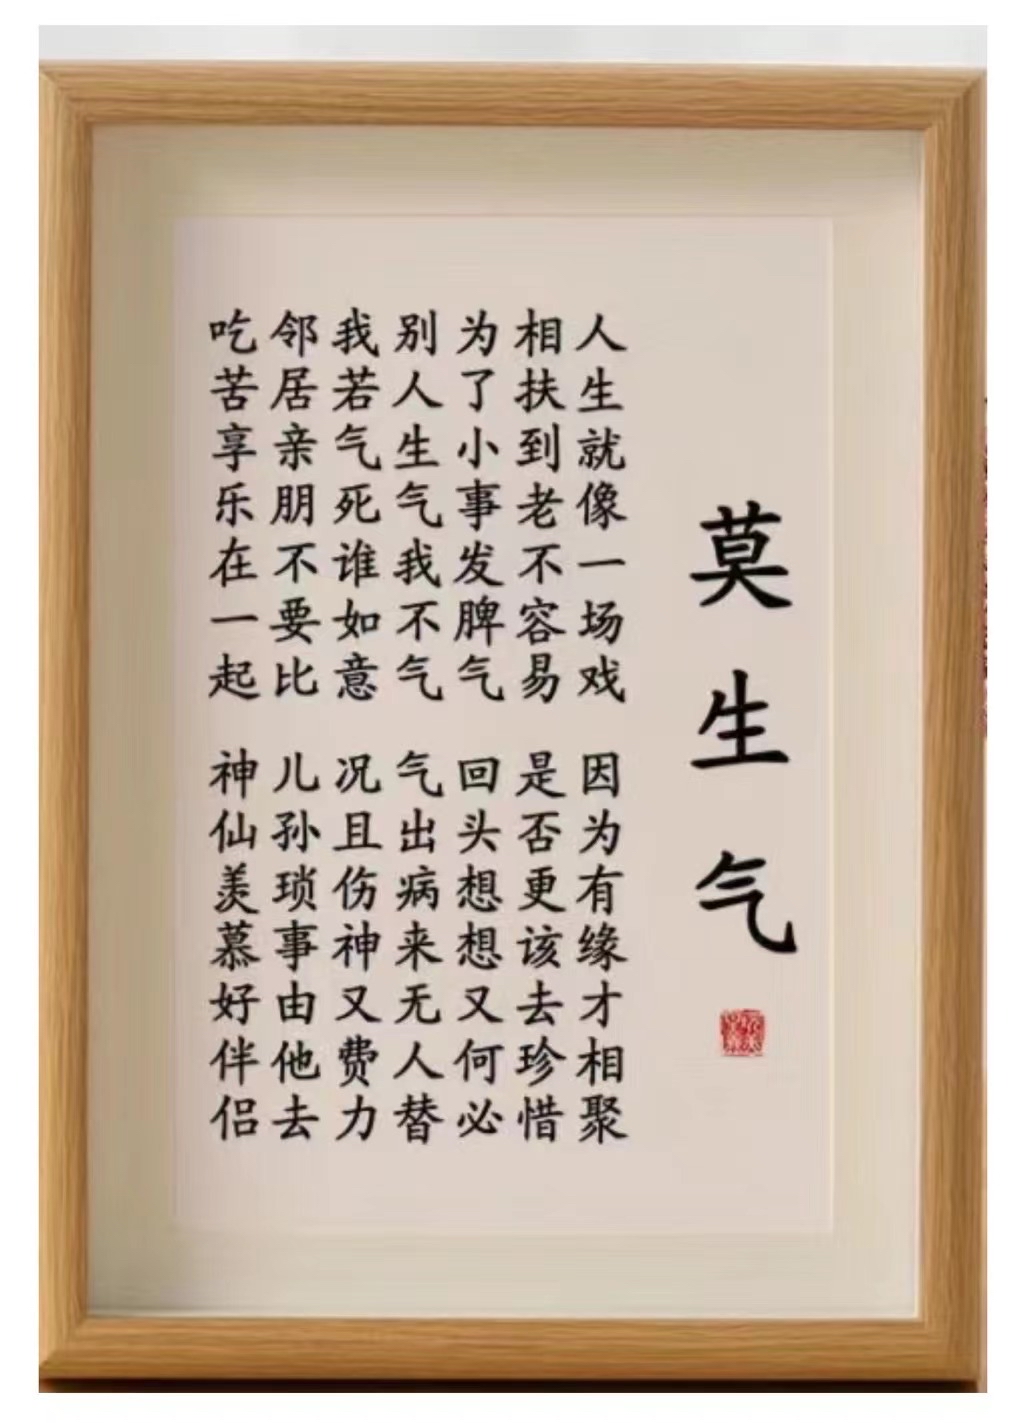 莫生气
人生就像一场戏 因为有缘才相聚
相扶到老不容易 是否更该去珍惜
为了小事发脾气 回头想想又何必
别人生气我不气 气出病来无人替
我若气死谁如意 况且伤神又费力
邻居亲朋不要比 儿孙琐事由他去
吃苦享乐在一起 神仙羡慕好伴侣